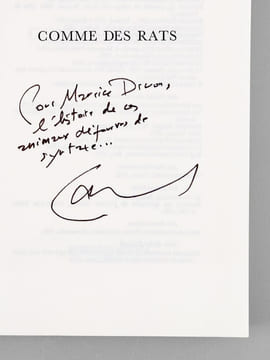 COMME DES RATS
Pour Maurice
l'histoire de ces
animaux dépourvus de
syntaxe...